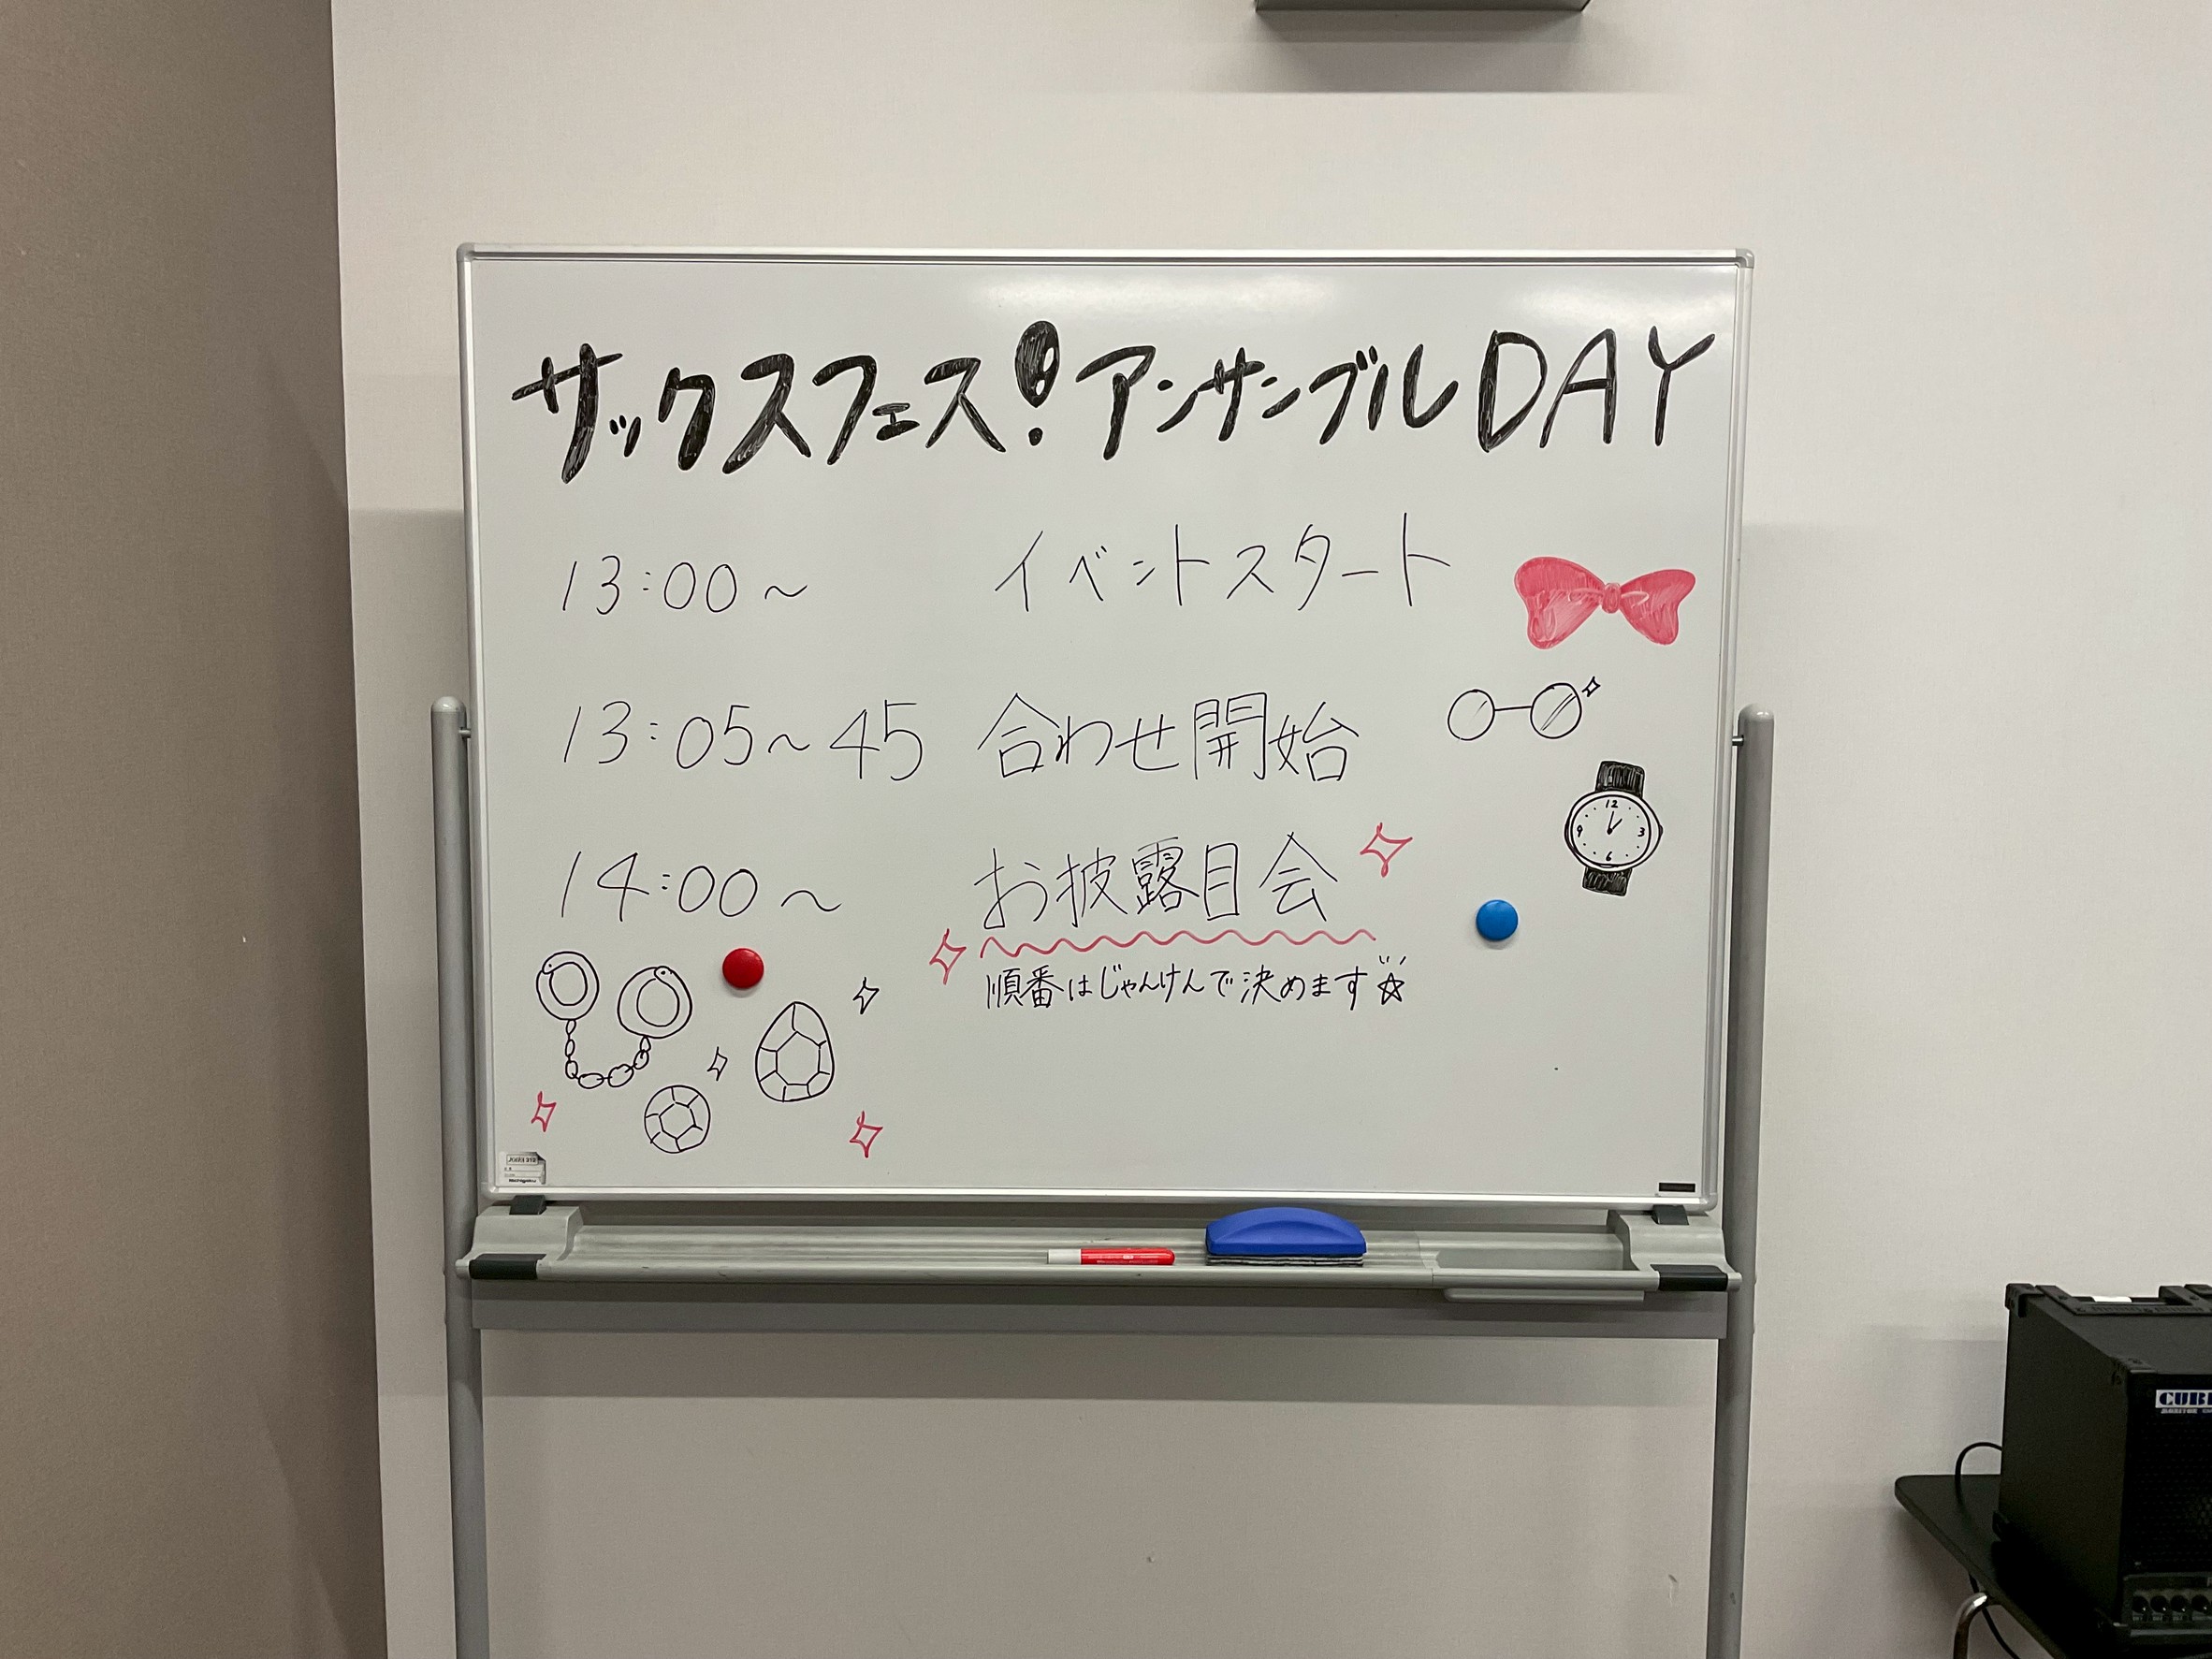 サックスフェス!アンサンブルDAY
13:00～ イベントスタート
13:05～45 合わせ開始
14:00～ お披露目会
順番はじゃんけんで決めます☆
12
3
6
9
Nichigaku